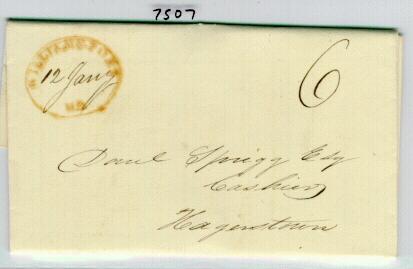 7507
WILLIAMSPORT
12 Jany
MD
6
Danl Sprigg Esq
Cashier
Hagerstown